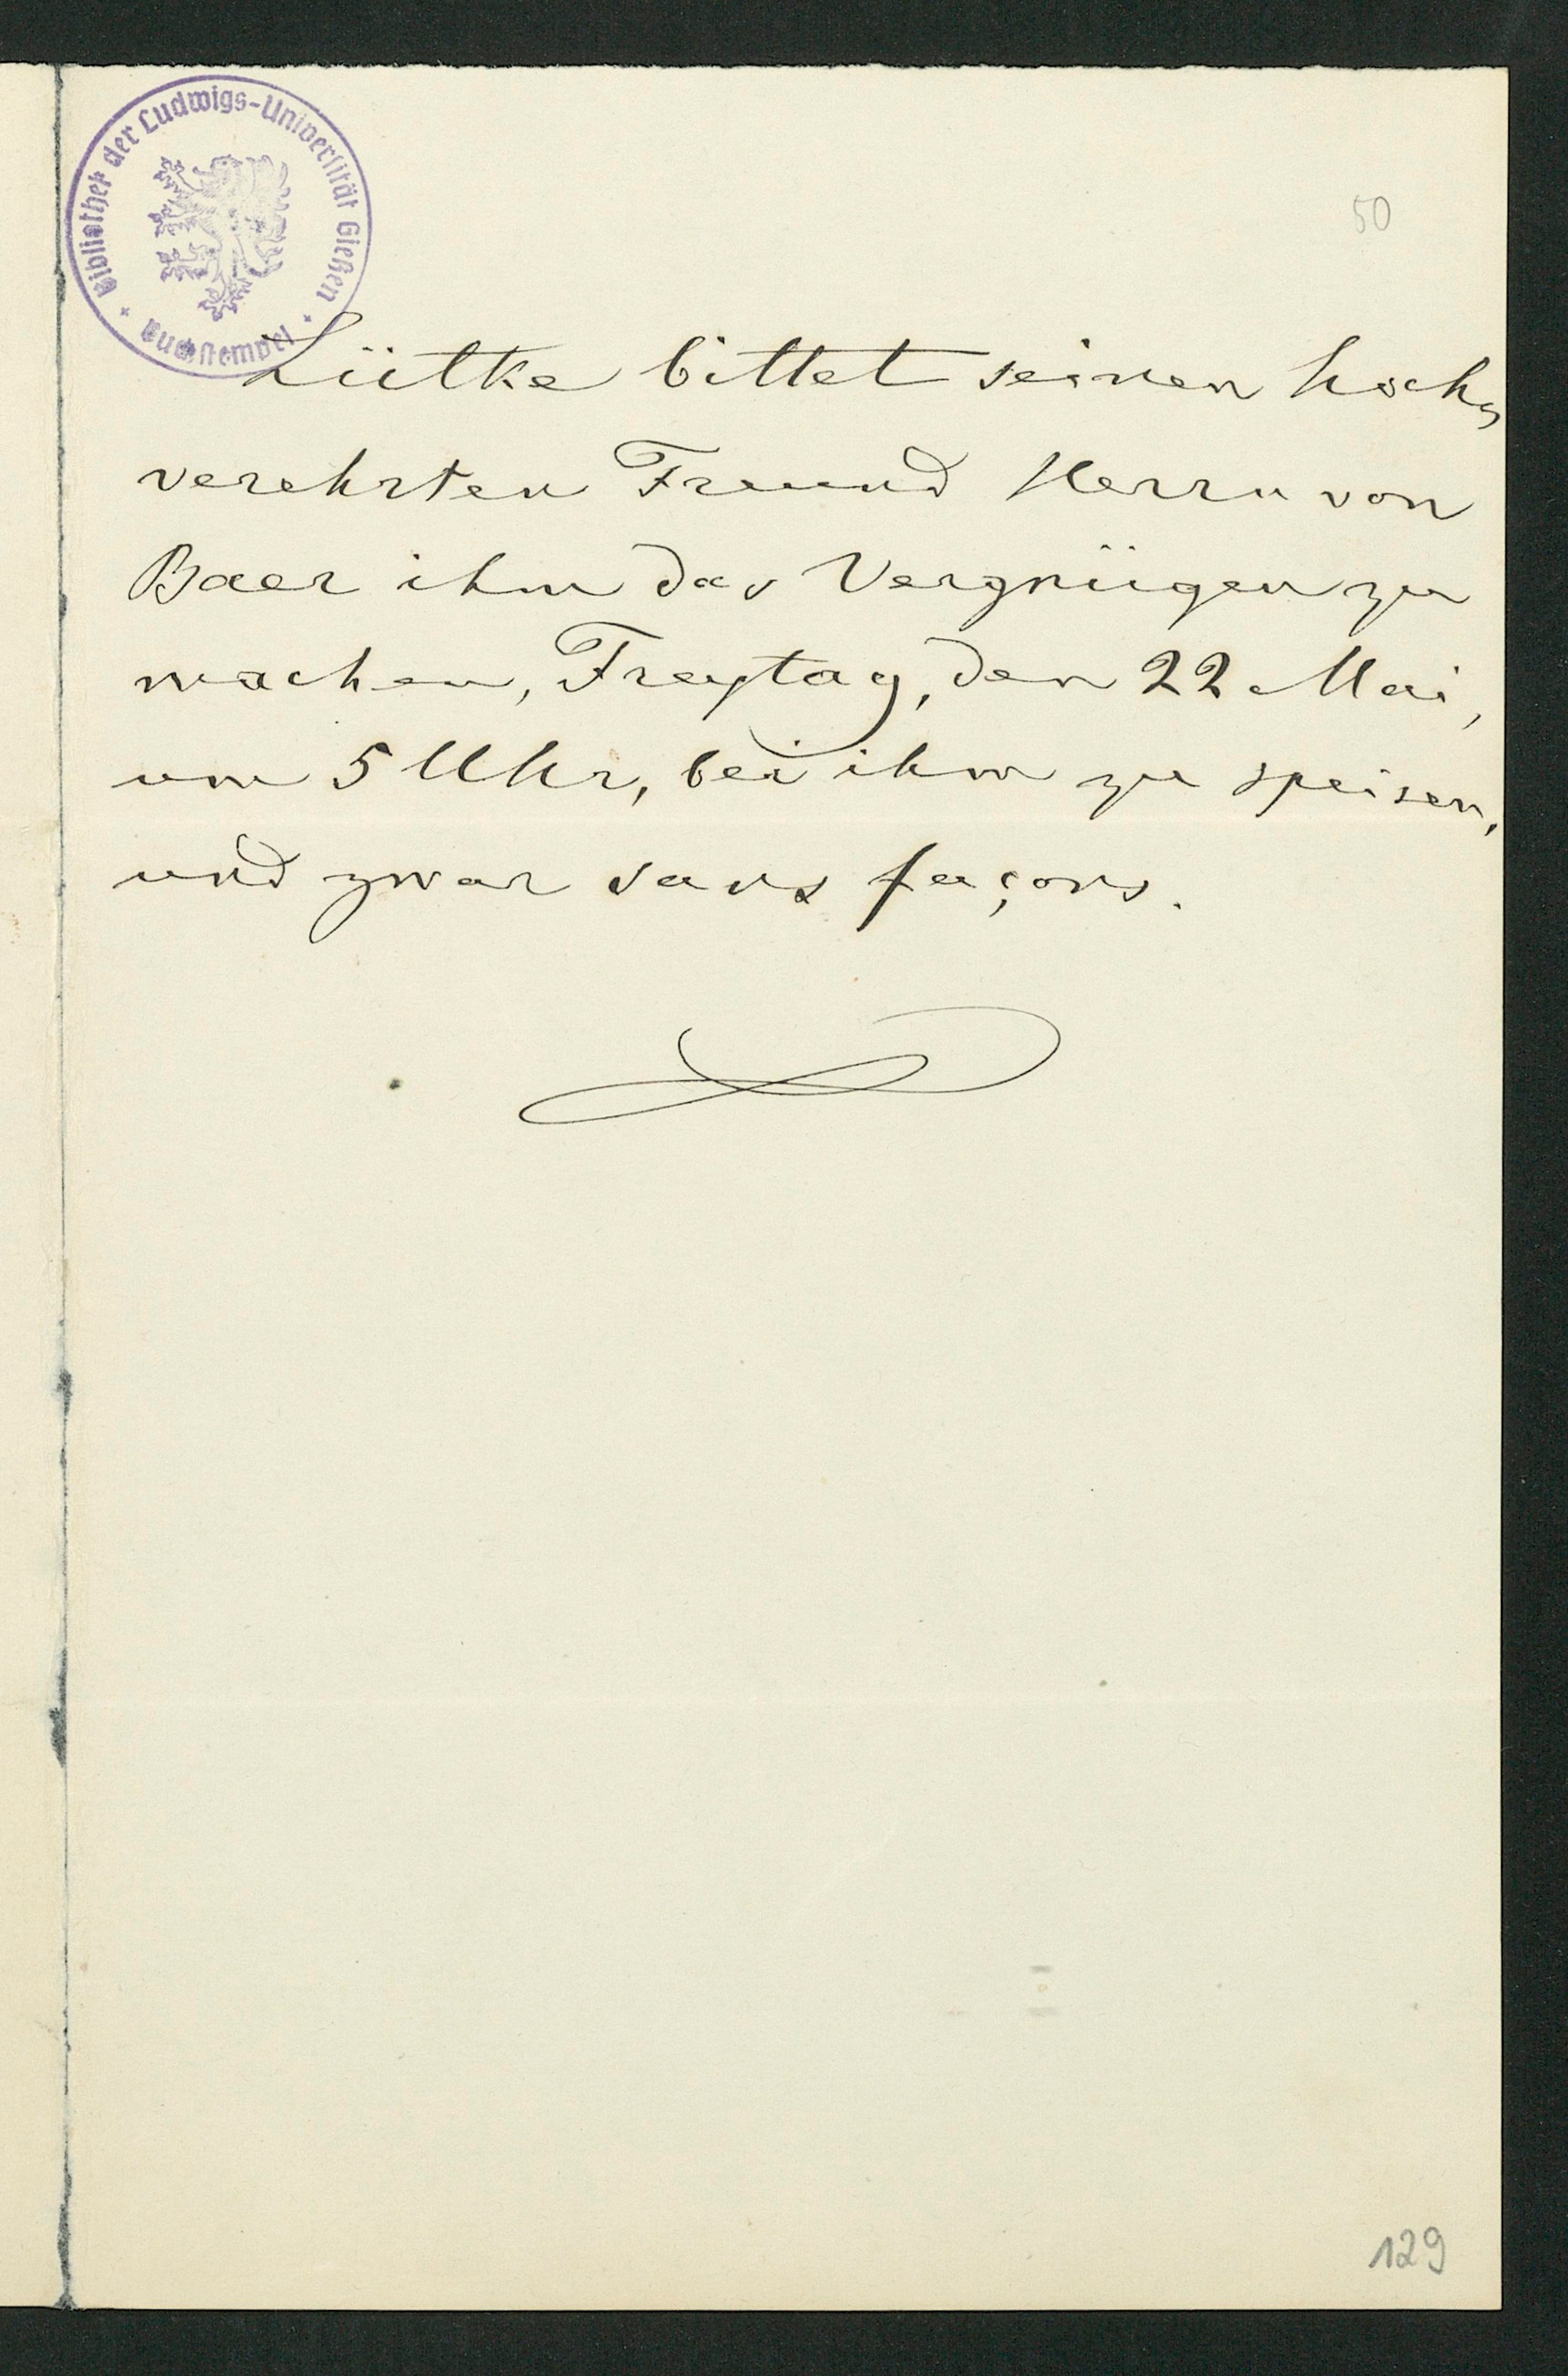 Bibliothek der Ludwigs-Universität Gießen
Buchstempel
50
Lütke bittet seinen hoch-
verehrten Freund Herrn von
Baer ihm das Vergnügen zu
machen, Freytag, den 22 Mai,
um 5 Uhr, bei ihm zu speisen,
und zwar sans façons.
129